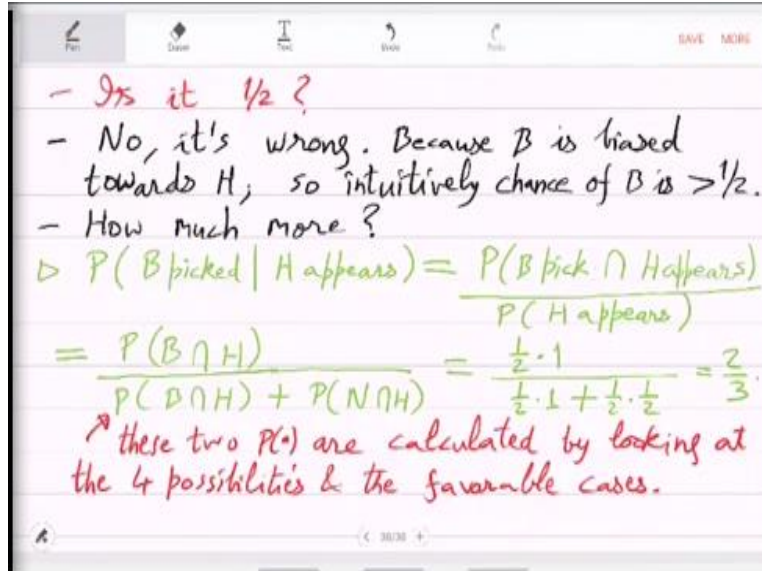 Pen Eraser Text Undo Redo SAVE MORE
- Is it 1/2 ?
- No, it's wrong. Because B is biased
towards H, so intuitively chance of B is > 1/2.
- How much more ?
▷ P( B picked | H appears) = P(B pick ∩ H appears) / P( H appears)
= P(B ∩ H) / P( B∩H) + P(N∩H) = ½·1 / ½·1 + ½·½ = 2/3.
↗ these two P(•) are calculated by looking at
the 4 possibilities & the favorable cases.
< 38/38 +